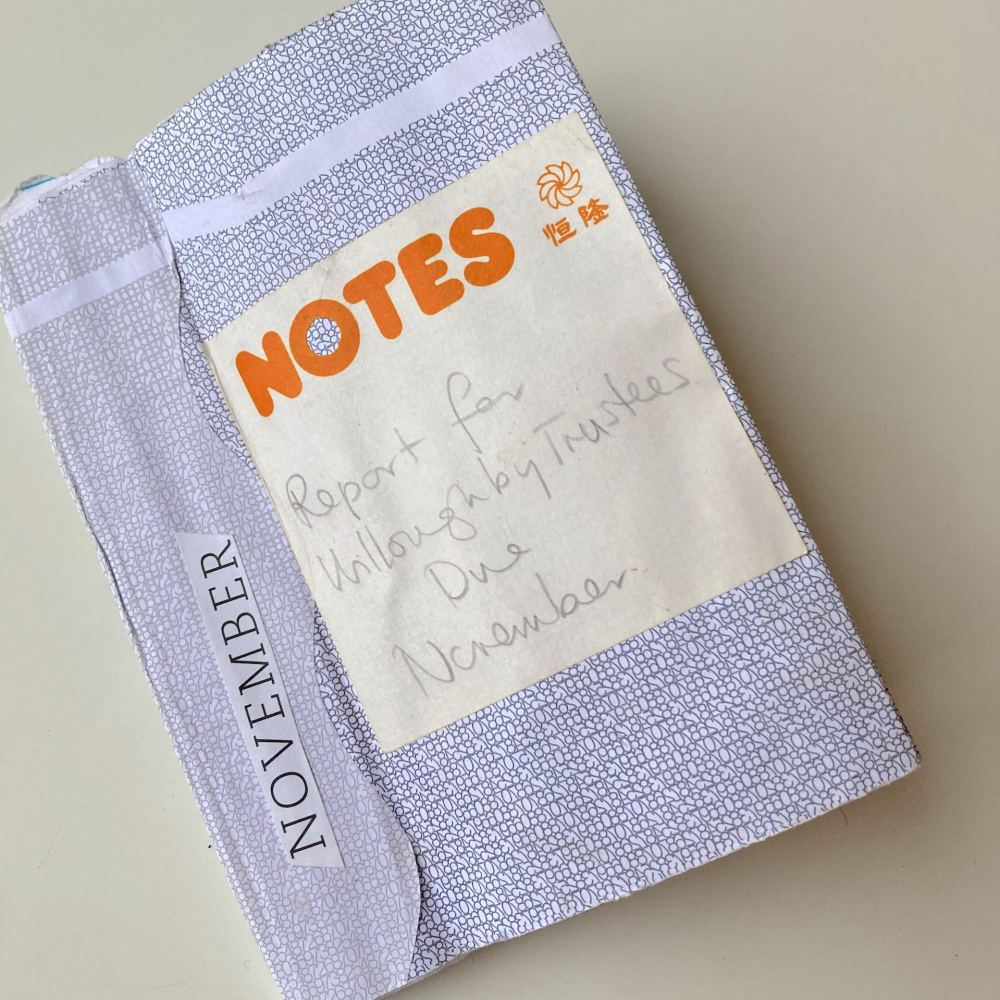 恒隆
NOTES
Report for
Willoughby Trustees
Due
November.
NOVEMBER